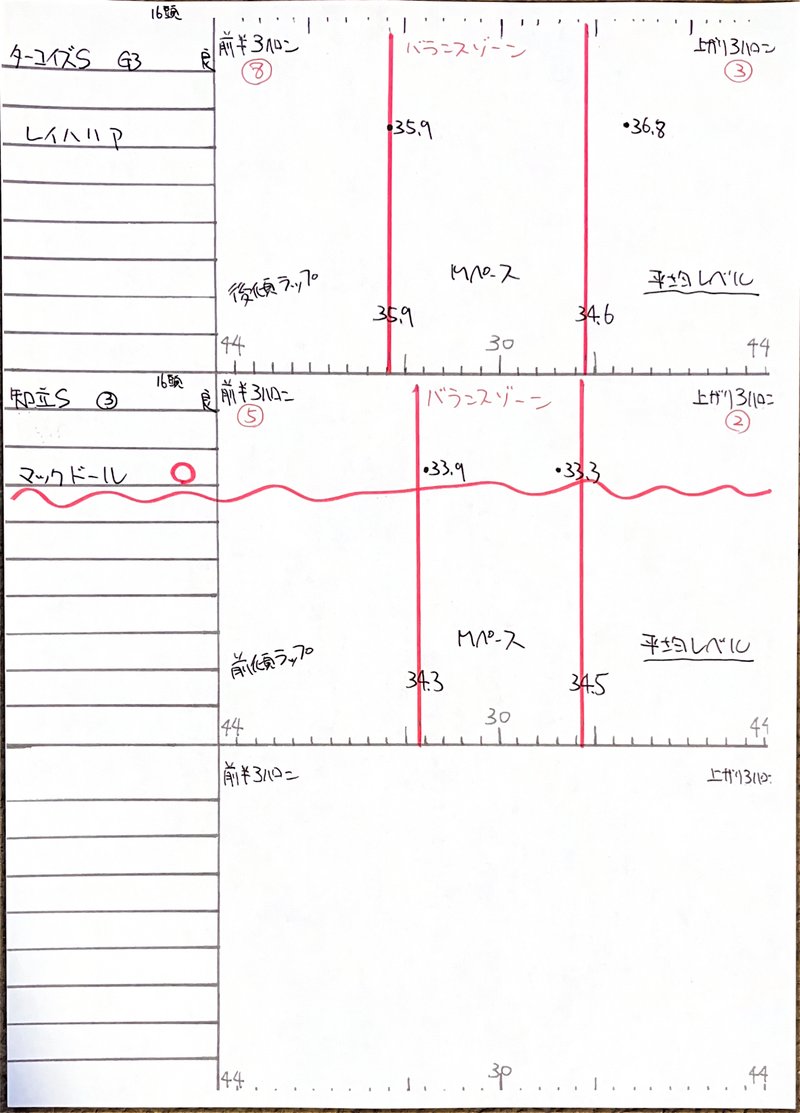 16頭
ターコイズS G3 良 前半3ハロン バランスゾーン 上がり3ハロン
⑧ ③
レイハリア 35.9 36.8
後傾ラップ Mペース 平均レベル
35.9 34.6
44 30 44
16頭
知立S ③ 良 前半3ハロン バランスゾーン 上がり3ハロン
⑤ ②
マックドール ○ 33.9 33.3
前傾ラップ Mペース 平均レベル
34.3 34.5
44 30 44
前半3ハロン 上がり3ハロン
44 30 44